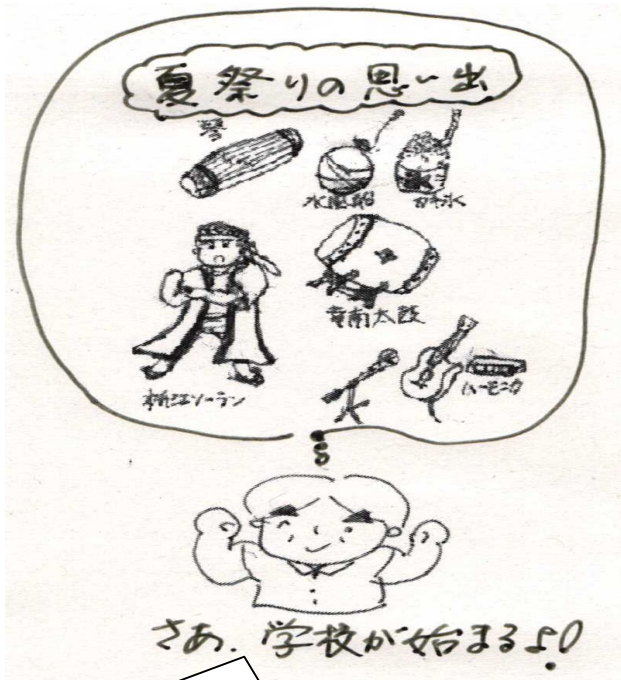 夏祭りの思い出
琴
水風船
カキ氷
竜南太鼓
ソーラン
ハーモニカ
さあ、学校が始まるよ!